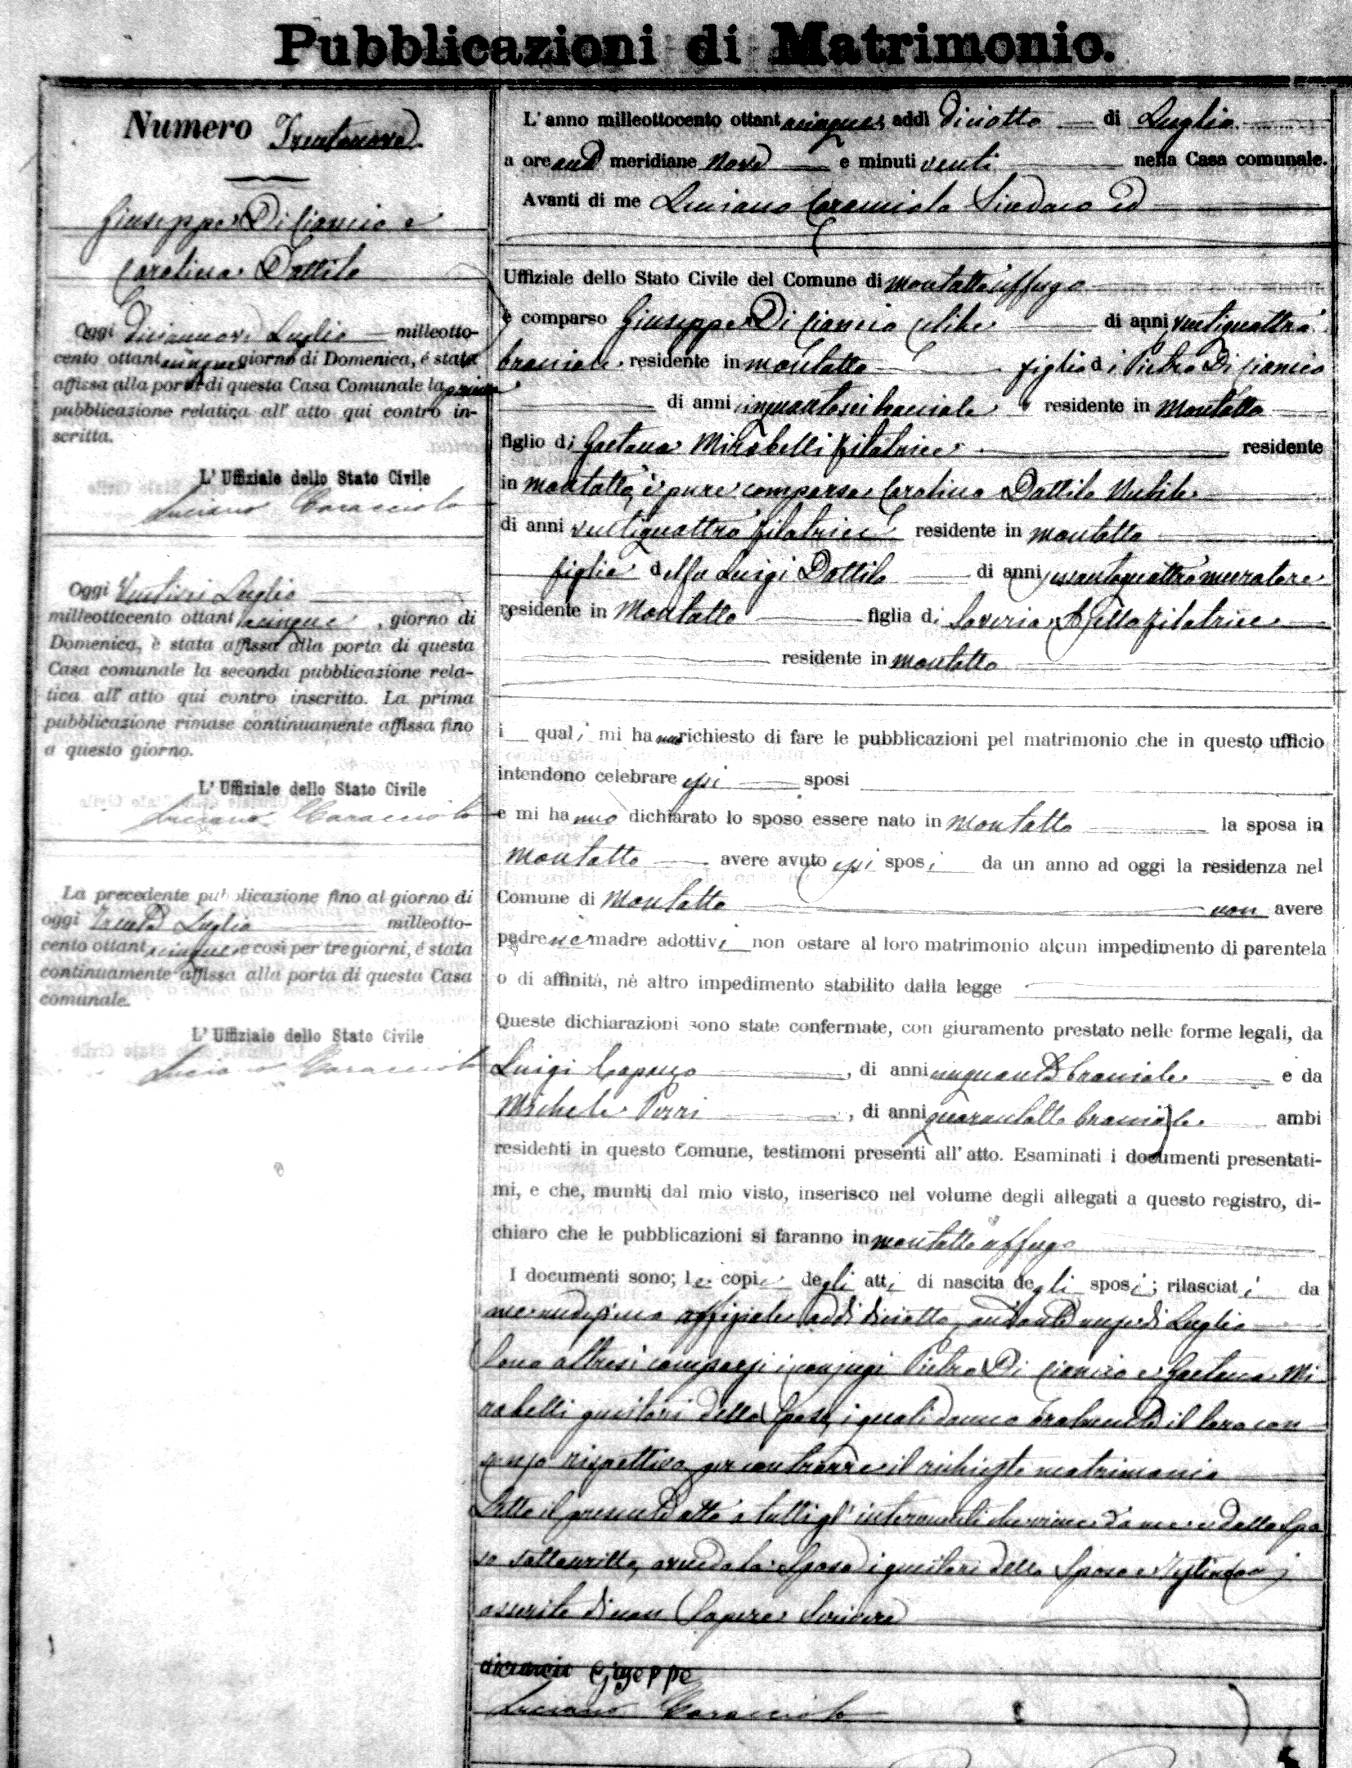 Pubblicazioni di Matrimonio.
Numero Trentanove
Giuseppe Di Ciancio e
Carolina Dattilo
Oggi diciannove Luglio milleotto-
cento ottantacinque giorno di Domenica, é stata
affissa alla porta di questa Casa Comunale la prima
pubblicazione relativa all' atto qui contro in-
scritta.
L' Uffiziale dello Stato Civile
Luciano Caracciolo
Oggi Ventisei Luglio
milleottocento ottantacinque, giorno di
Domenica, è stata affissa alla porta di questa
Casa comunale la seconda pubblicazione rela-
tica all' atto qui contro inscritto. La prima
pubblicazione rimase continuamente affissa fino
a questo giorno.
L' Uffiziale dello Stato Civile
Luciano Caracciolo
La precedente pubblicazione fino al giorno di
oggi trenta Luglio milleotto-
cento ottantacinque e così per tre giorni, é stata
continuamente affissa alla porta di questa Casa
comunale.
L' Uffiziale dello Stato Civile
Luciano Caracciolo
L' anno milleottocento ottantacinque, addì diciotto di Luglio
a ore anti meridiane nove e minuti venti nella Casa comunale.
Avanti di me Luciano Caracciolo Sindaco ed
Uffiziale dello Stato Civile del Comune di Montalto Uffugo
è comparso Giuseppe Di Ciancio celibe di anni ventiquattro
bracciale residente in Montalto figlio di Pietro Di Ciancio
di anni cinquantasei bracciale residente in Montalto
figlio di Gaetana Mirabelli filatrice residente
in Montalto, è pure comparsa Carolina Dattilo Nubile
di anni ventiquattro filatrice residente in Montalto
figlia del fu Luigi Dattilo di anni sessantaquattro muratore
residente in Montalto figlia di Saveria filatrice
residente in Montalto
i quali mi hanno richiesto di fare le pubblicazioni pel matrimonio che in questo ufficio
intendono celebrare essi sposi
e mi hanno dichiarato lo sposo essere nato in Montalto la sposa in
Montalto avere avuto essi sposi da un anno ad oggi la residenza nel
Comune di Montalto non avere
padre nè madre adottivi non ostare al loro matrimonio alcun impedimento di parentela
o di affinità, nè altro impedimento stabilito dalla legge
Queste dichiarazioni sono state confermate, con giuramento prestato nelle forme legali, da
Luigi Capazzo, di anni cinquanta bracciale e da
Michele Perri, di anni quarantotto bracciale ambi
residenti in questo Comune, testimoni presenti all' atto. Esaminati i documenti presentati-
mi, e che, muniti dal mio visto, inserisco nel volume degli allegati a questo registro, di-
chiaro che le pubblicazioni si faranno in Montalto Uffugo
I documenti sono; le copie degli atti di nascita degli sposi; rilasciati da
me medesimo uffiziale addì diciotto andante mese di Luglio
Sono altresì comparsi i conjugi Pietro Di Ciancio e Gaetana Mi
rabelli genitori dello Sposo, i quali danno oralmente il loro con
senso rispettivo per contrarre il richiesto matrimonio
Letto il presente atto a tutti gl' intervenuti che viene da me e dallo Spo
so sottoscritto, avendo la Sposa i genitori dello Sposo e Testimoni
asserito di non Sapere Scrivere
diciancio Giuseppe
Luciano Caracciolo